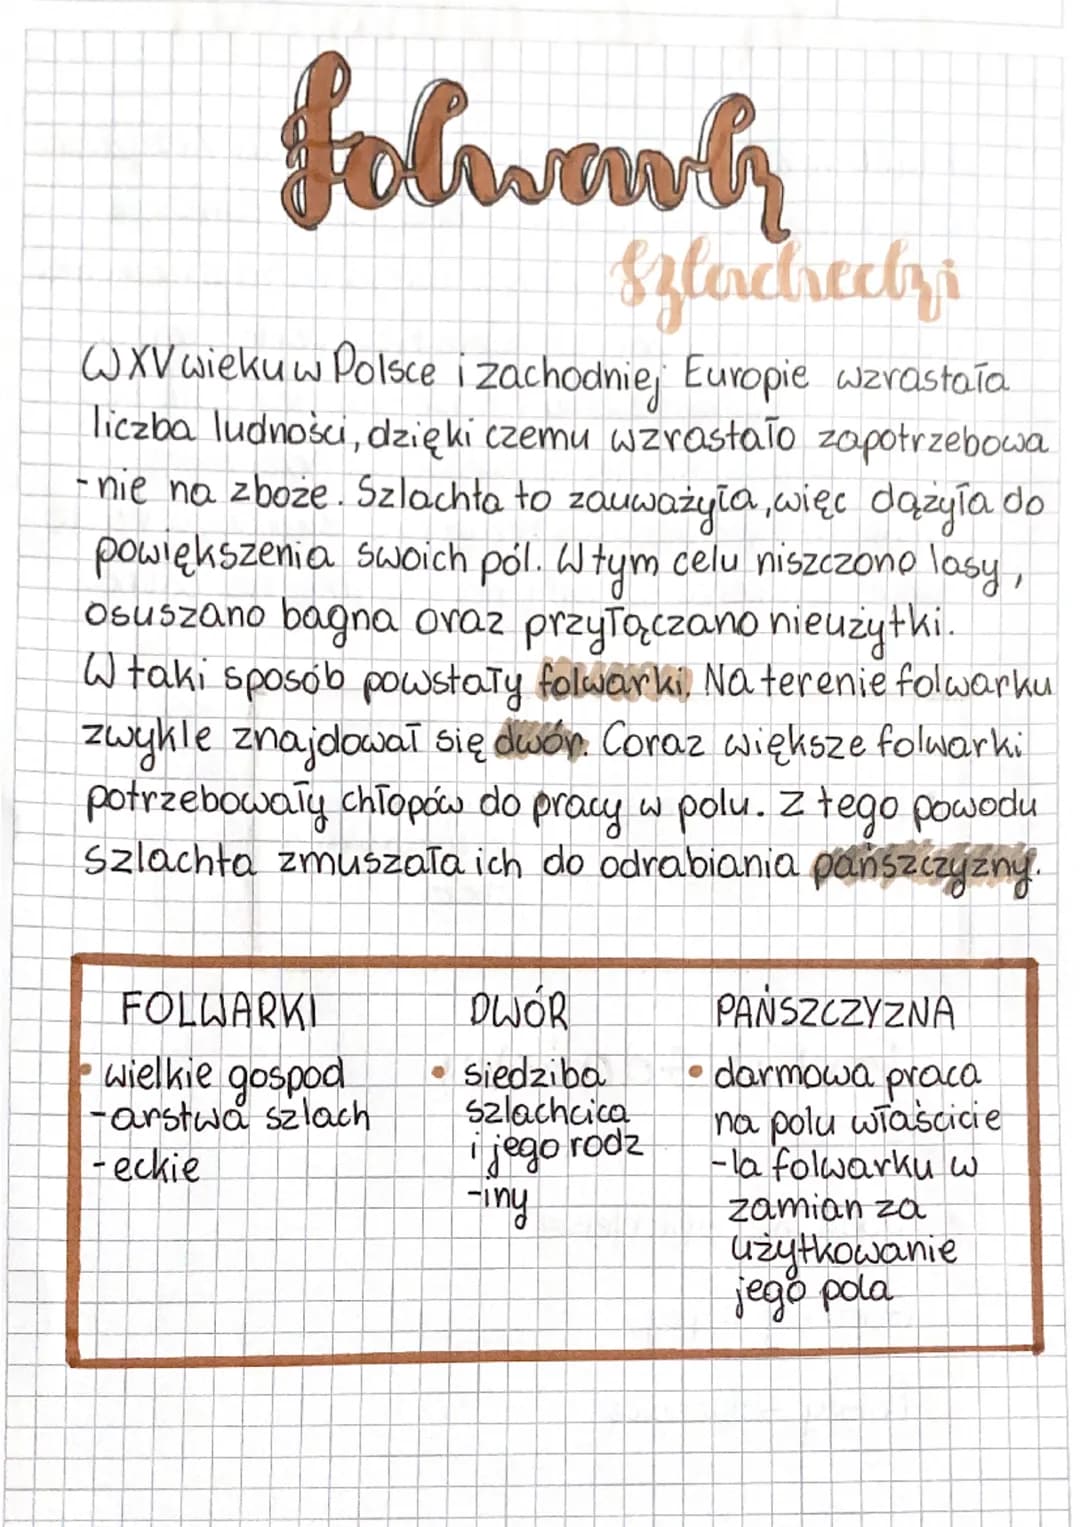 folwark
szlachecki
W XV wieku w Polsce i zachodniej Europie wzrastała
liczba ludności, dzięki czemu wzrastało zapotrzebowa
-nie na zboże. Szlachta to zauważyła, więc dążyła do
powiększenia swoich pól. W tym celu niszczono lasy,
osuszano bagna oraz przyłączano nieużytki.
W taki sposób powstały folwarki. Na terenie folwarku
zwykle znajdował się dwór. Coraz większe folwarki
potrzebowały chłopów do pracy w polu. Z tego powodu
szlachta zmuszała ich do odrabiania pańszczyzny.
FOLWARKI
• wielkie gospod
-arstwa szlach
-eckie
DWÓR
• siedziba
szlachcica
i jego rodz
-iny
PAŃSZCZYZNA
• darmowa praca
na polu właścicie
-la folwarku w
zamian za
użytkowanie
jego pola